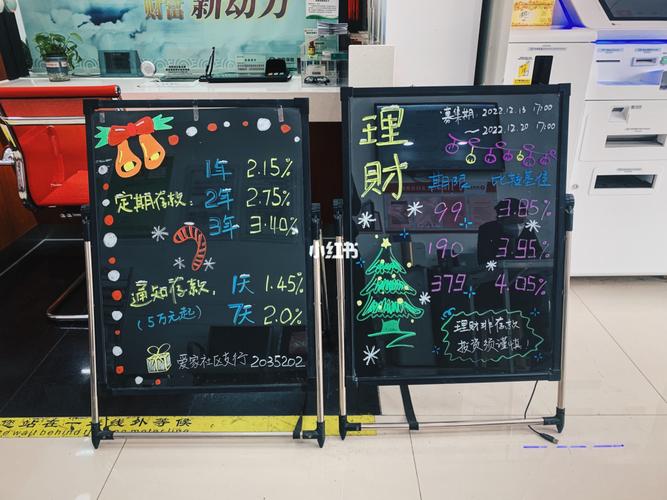 财富 新动力
1年 2.15%
定期存款: 2年 2.75%
3年 3.40%
通知存款, 1天 1.45%
(5万元起) 7天 2.0%
爱家社区支行 2035202
小红书
理财
募集期: 2022.12.13 17:00
~ 2022.12.20 17:00
期限 比较基准
99 3.85%
190 3.95%
379 4.05%
理财非存款
投资须谨慎!
您站在一米线外等候